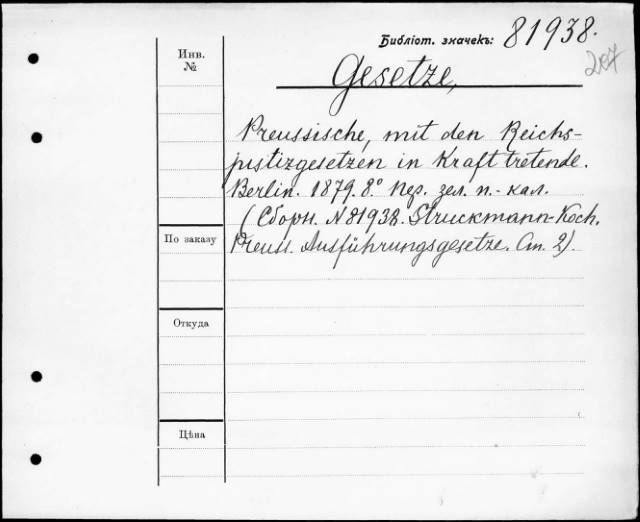 Библіот. значекъ: 81938.
207
Инв.
№
Gesetze,
Preussische, mit den Reichs-
justizgesetzen in Kraft tretende.
Berlin. 1879. 8° Пер. зел. п.-кал.
(Сборн. N 81938. Struckmann-Koch.
Preuss. Ausführungsgesetze. Ал. 2).
По заказу
Откуда
Цѣна